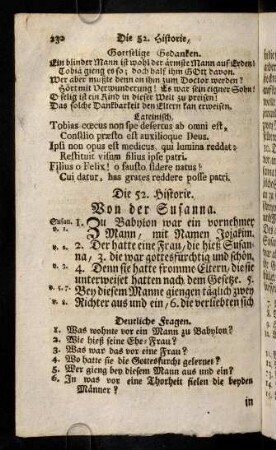 232 Die 52. Historie,
Gottselige Gedanken.
Ein blinder Mann ist wohl der ärmste Mann auf Erden!
Tobiä gieng es so; doch half ihm GOtt davon.
Wer aber mußte denn an ihm zum Doctor werden?
Hört mit Verwunderung! Es war sein eigner Sohn!
O selig ist ein Kind in dieser Welt zu preisen!
Das solche Dankbarkeit den Eltern kan erweisen.
Lateinisch.
Tobias cœcus non spe desertus ab omni est,
Consilio præsto est auxilioque Deus.
Ipsi non opus est medicus, qui lumina reddat:
Restituit visum filius ipse patri.
Filius o Felix! o fausto sidere natus!
Cui datur, has grates reddere posse patri.
Die 52. Historie.
Von der Susanna.
Susan. 1. Zu Babylon war ein vornehmer
v. 1. Mann, mit Namen Jojakim.
v. 2. 2. Der hatte eine Frau, die hieß Susan-
na, 3. die war gottesfürchtig und schön,
v. 3. 4. Denn sie hatte fromme Eltern, die sie
unterweiset hatten nach dem Gesetze. 5.
v. 4.7. Bey diesem Manne giengen täglich zween
v. 8. Richter aus und ein, 6. die verliebten sich
Deutliche Fragen.
1. Was wohnte vor ein Mann zu Babylon?
2. Wie hieß seine Ehe-Frau?
3. Was war das vor eine Frau?
4. Wo hatte sie die Gottesfurcht gelernet?
5. Wer gieng bey diesem Mann aus und ein?
6. In was vor eine Thorheit fielen die beyden
Männer?
in